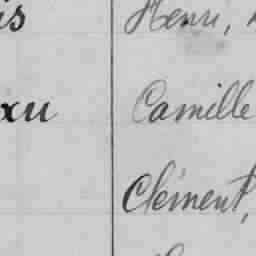 is Henri,
xu Camille
Clément,